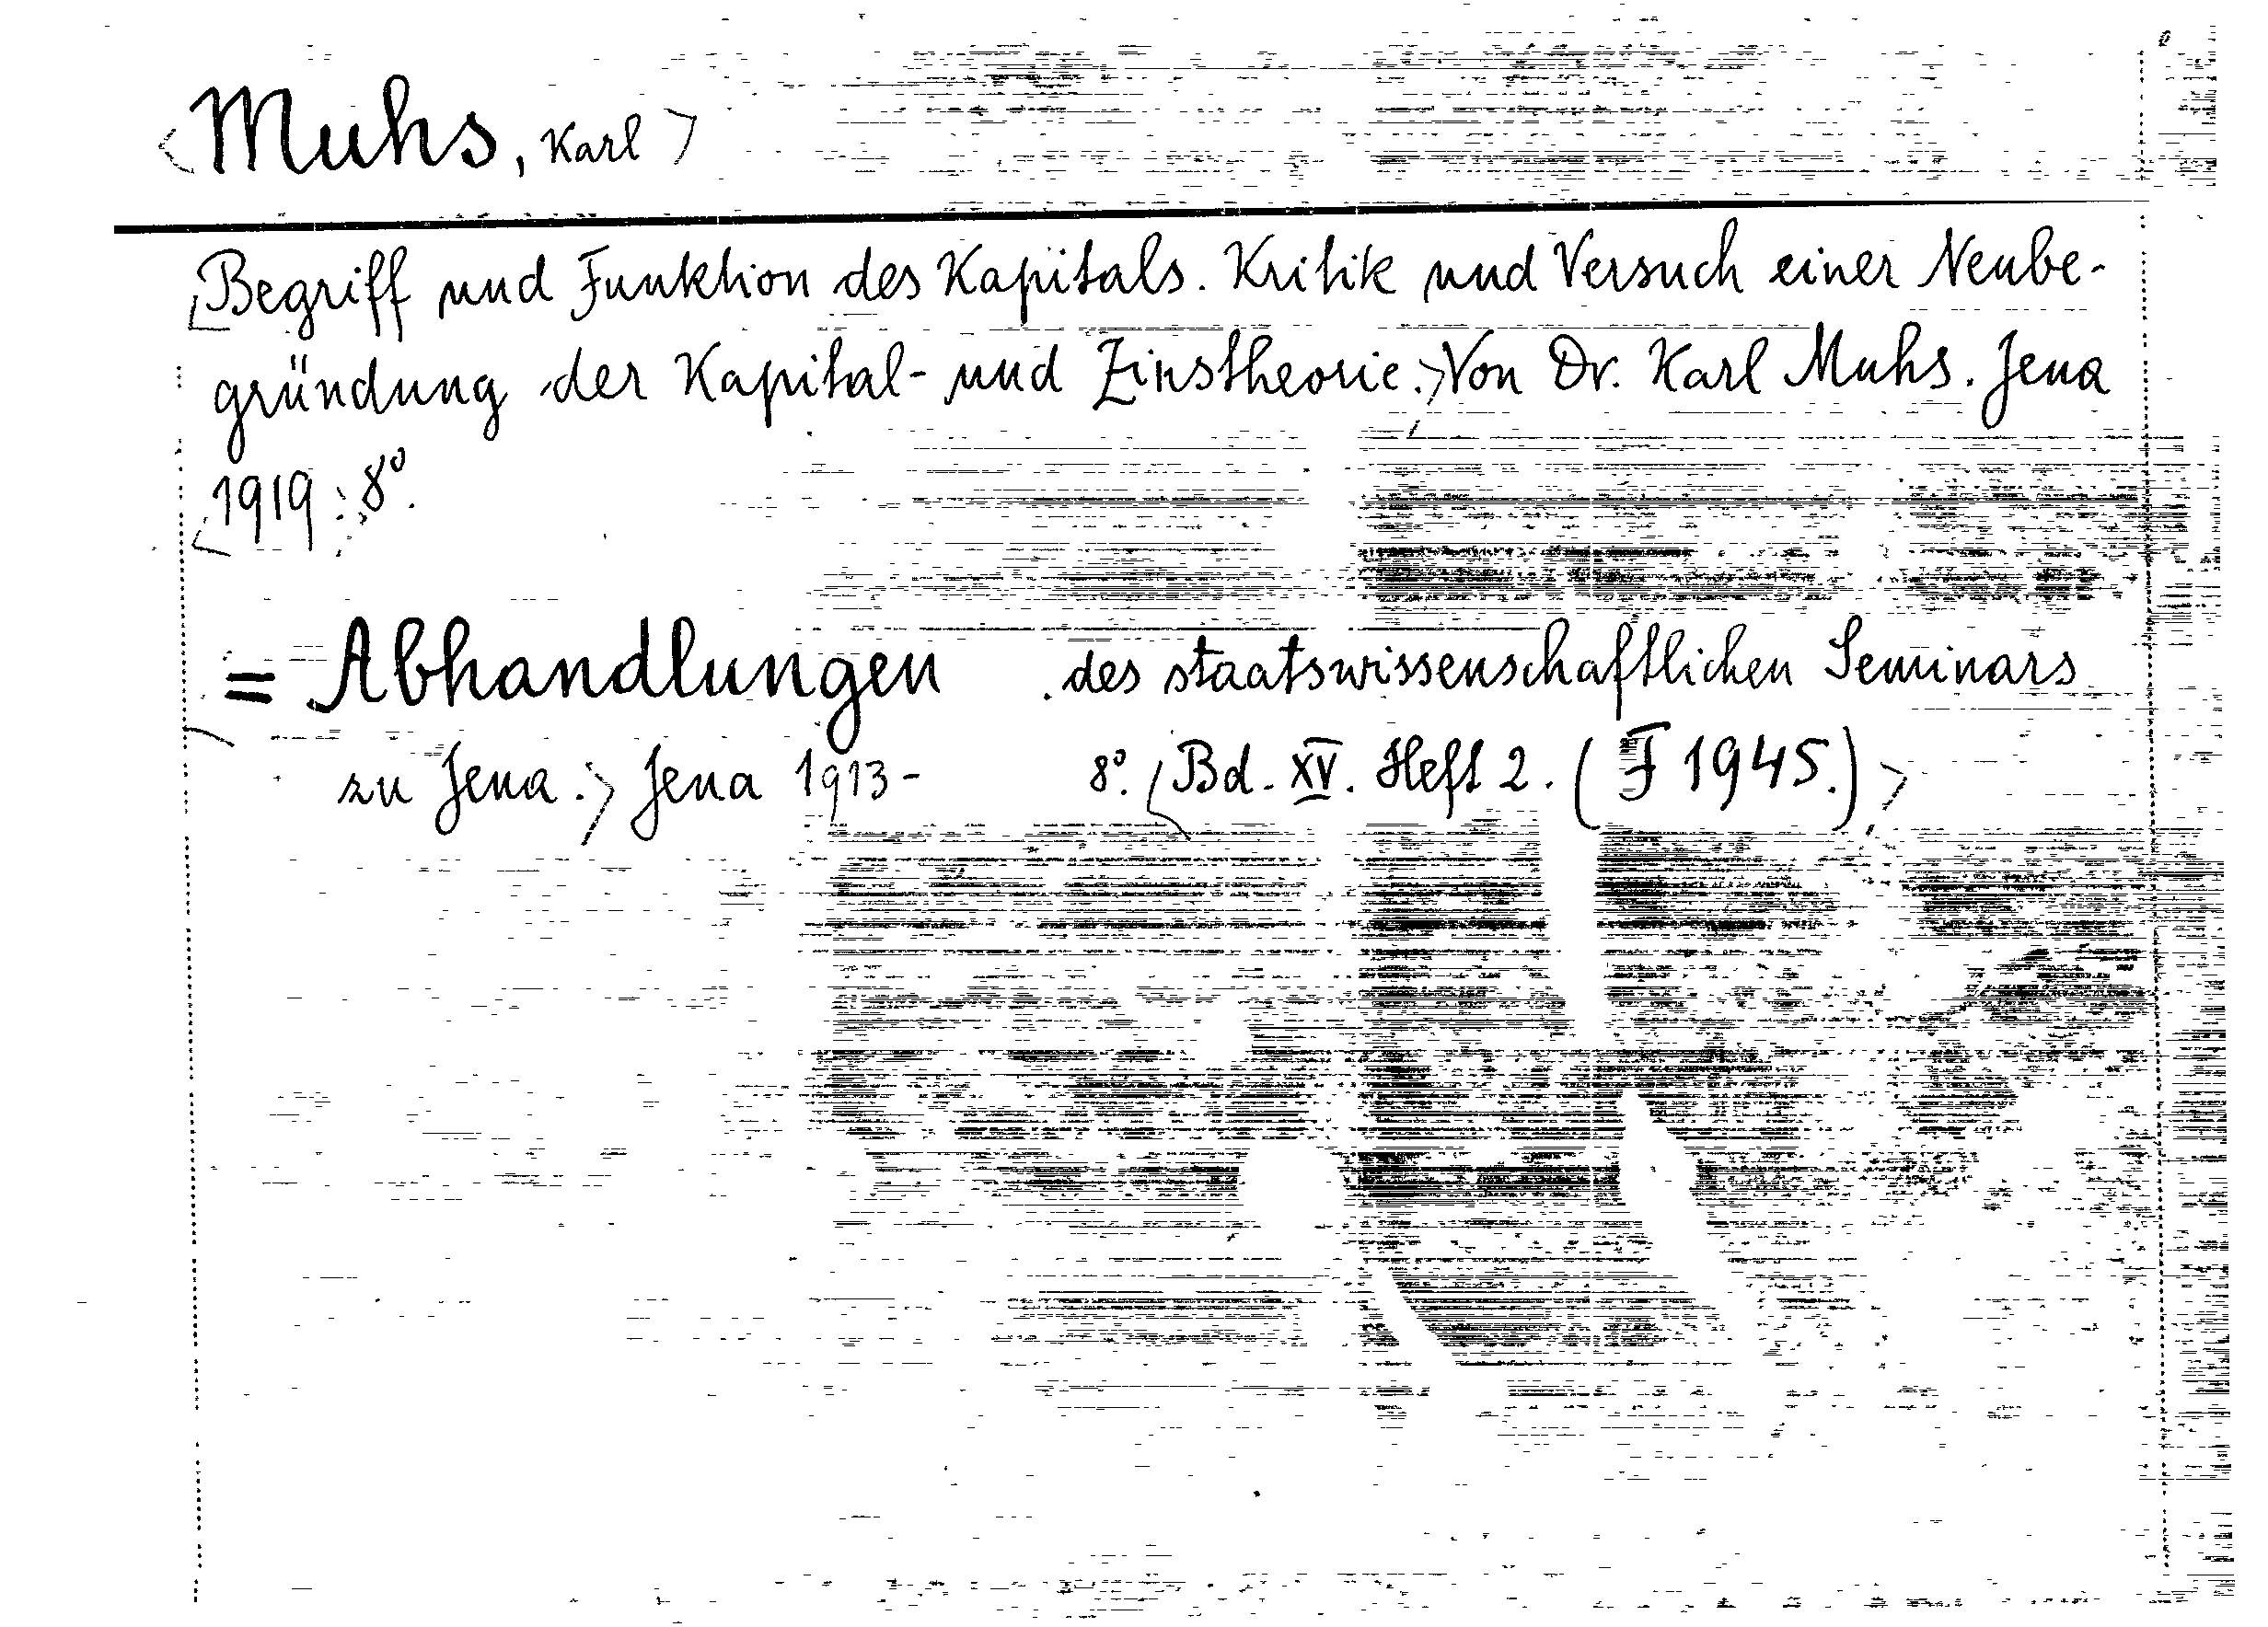 <Muhs, Karl>
Begriff und Funktion des Kapitals. Kritik und Versuch einer Neube-
gründung der Kapital- und Zinstheorie.> Von Dr. Karl Muhs. Jena
1919. 8°.
= Abhandlungen des staatswissenschaftlichen Seminars
zu Jena.> Jena 1913- 8°. <Bd. XV. Heft 2. (F 1945.)>